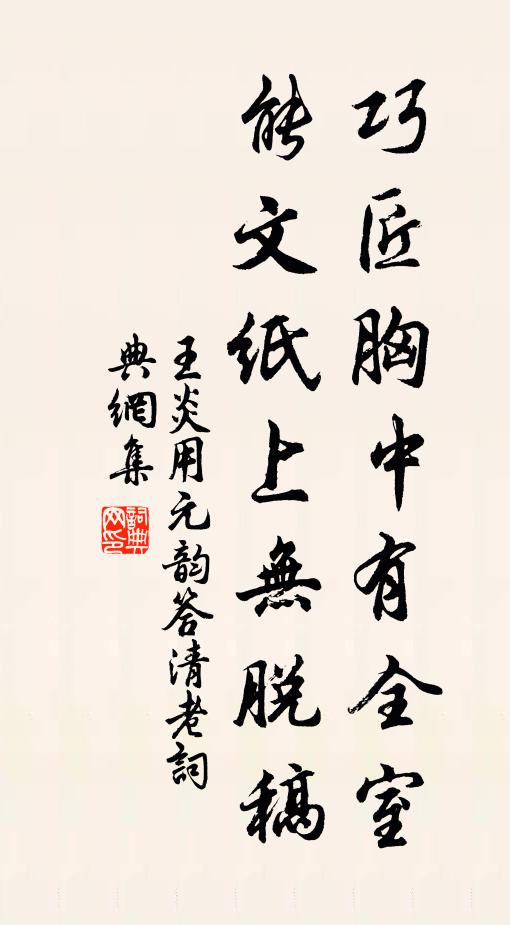 巧匠胸中有全室
能文紙上無脱稿
王炎用元韵答清老詞
典網集
詞典网印